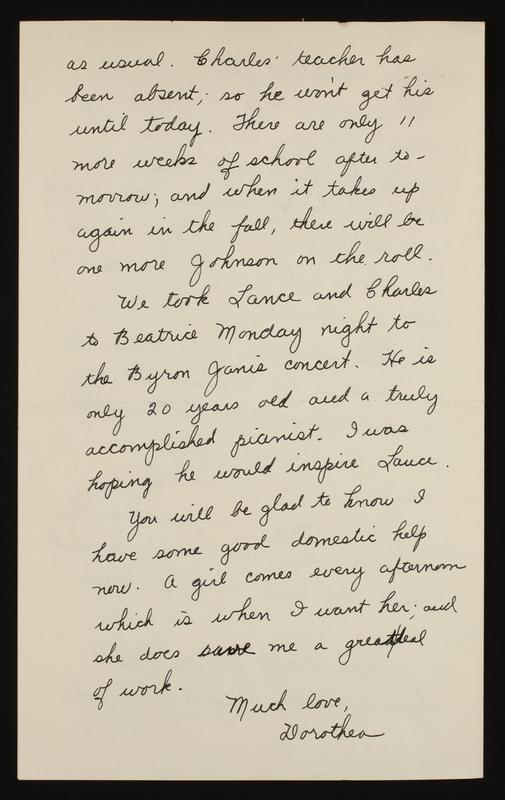 as usual. Charles' teacher has
been absent; so he won't get his
until today. There are only 11
more weeks of school after to-
morrow; and when it takes up
again in the fall, there will be
one more Johnson on the roll.
We took Lance and Charles
to Beatrice Monday night to
the Byron Janis concert. He is
only 20 years old and a truly
accomplished pianist. I was
hoping he would inspire Lance.
You will be glad to know I
have some good domestic help
now. A girl comes every afternoon
which is when I want her; and
she does save me a great deal
of work.
Much love,
Dorothea